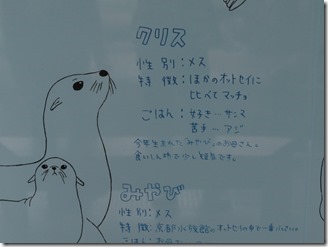 クリス
性別：メス
特徴：ほかのオットセイに
比べてマッチョ
ごはん：好き…サンマ
苦手…アジ
今年生まれた「みやび」のお母さん。
食いしん坊で少し短気です。
みやび
性別：メス
特徴：京都水族館のオットセイの中で一番小さい。
ごはん：お母さん